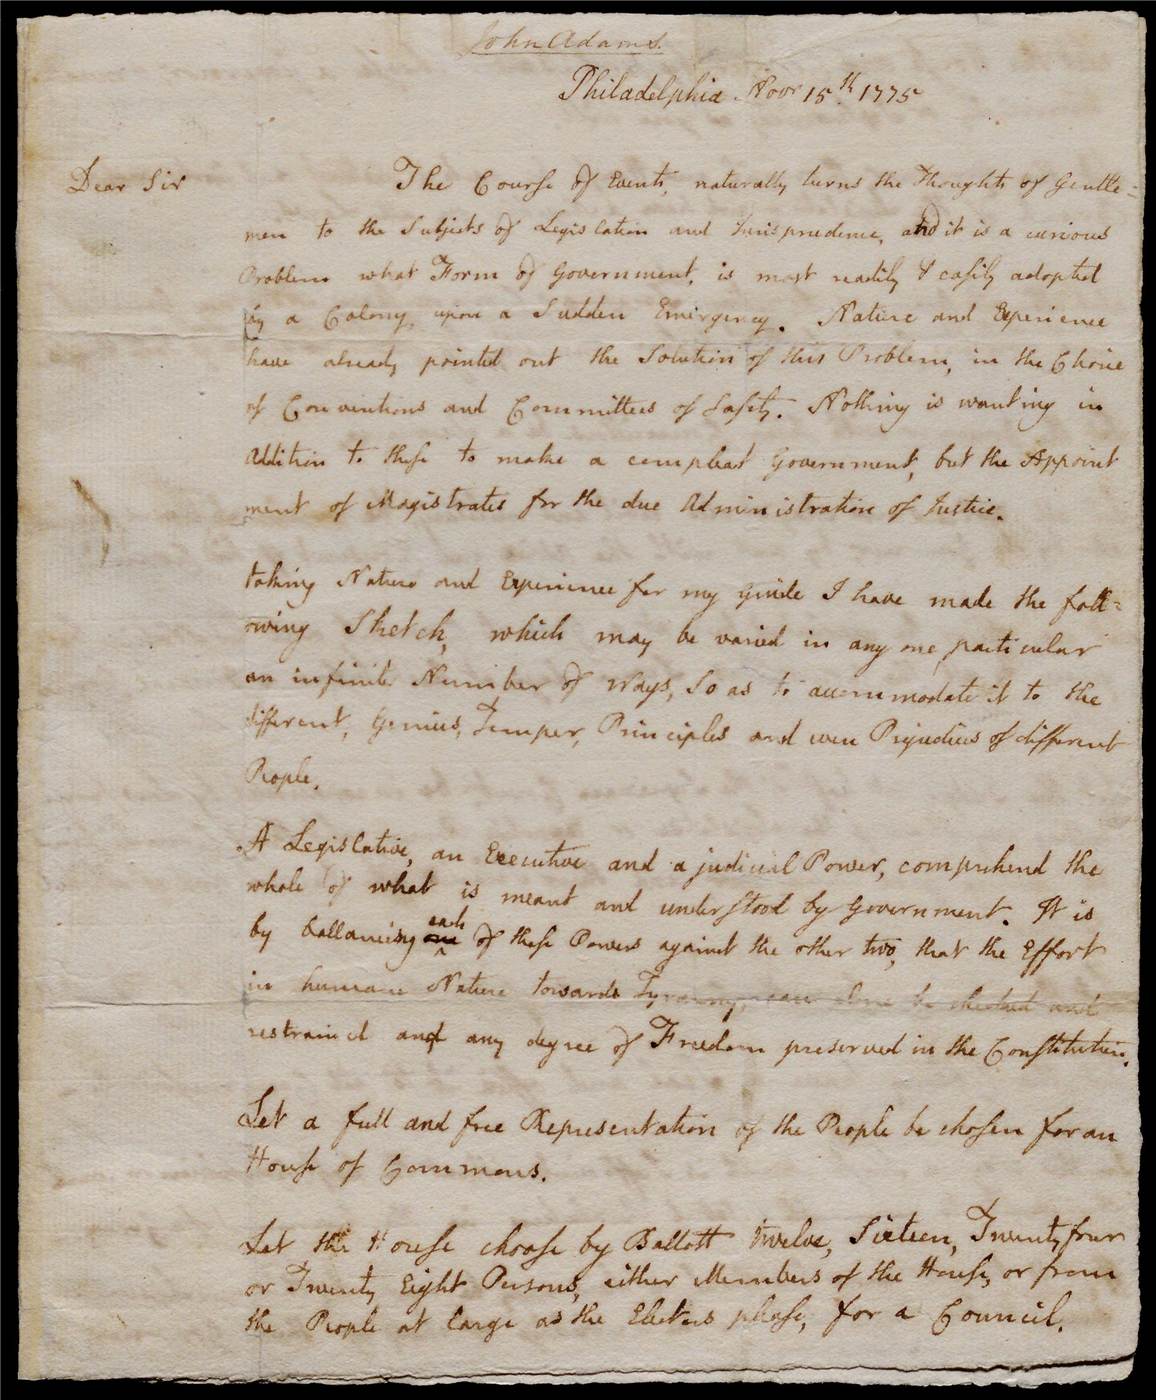 John Adams.
Philadelphia Novr 15th. 1775
Dear Sir
The Course of Events, naturally turns the Thoughts of Gentle=
men to the Subjects of Legislation and Jurisprudence, and it is a curious
Problem what Form of Government, is most readily & easily adopted
by a Colony, upon a Sudden Emergency. Nature and Experience
have already pointed out the Solution of this Problem, in the Choice
of Conventions and Committees of Safety. Nothing is wanting in
Addition to these to make a compleat Government, but the Appoint
ment of Magistrates for the due Administration of Justice.
taking Nature and Experience for my Guide I have made the foll=
owing Sketch, which may be varied in any one particular
an infinite Number of Ways, So as to accommodate it to the
different, Genius, Temper, Principles and even Prejudices of different
People.
A Legislative, an Executive and a judicial Power, comprehend the
whole of what is meant and understood by Government. It is
by ballancing one each of these Powers against the other two, that the Effort
in humane Nature towards Tyranny, can alone be checked and
restrained and any degree of Freedom preserved in the Constitution.
Let a full and free Representation of the People be chosen for an
House of Commons.
Let the House choose by Ballott twelve, Sixteen, Twenty four
or Twenty Eight Persons, either Members of the House, or from
the People at large as the Electors please, for a Council.